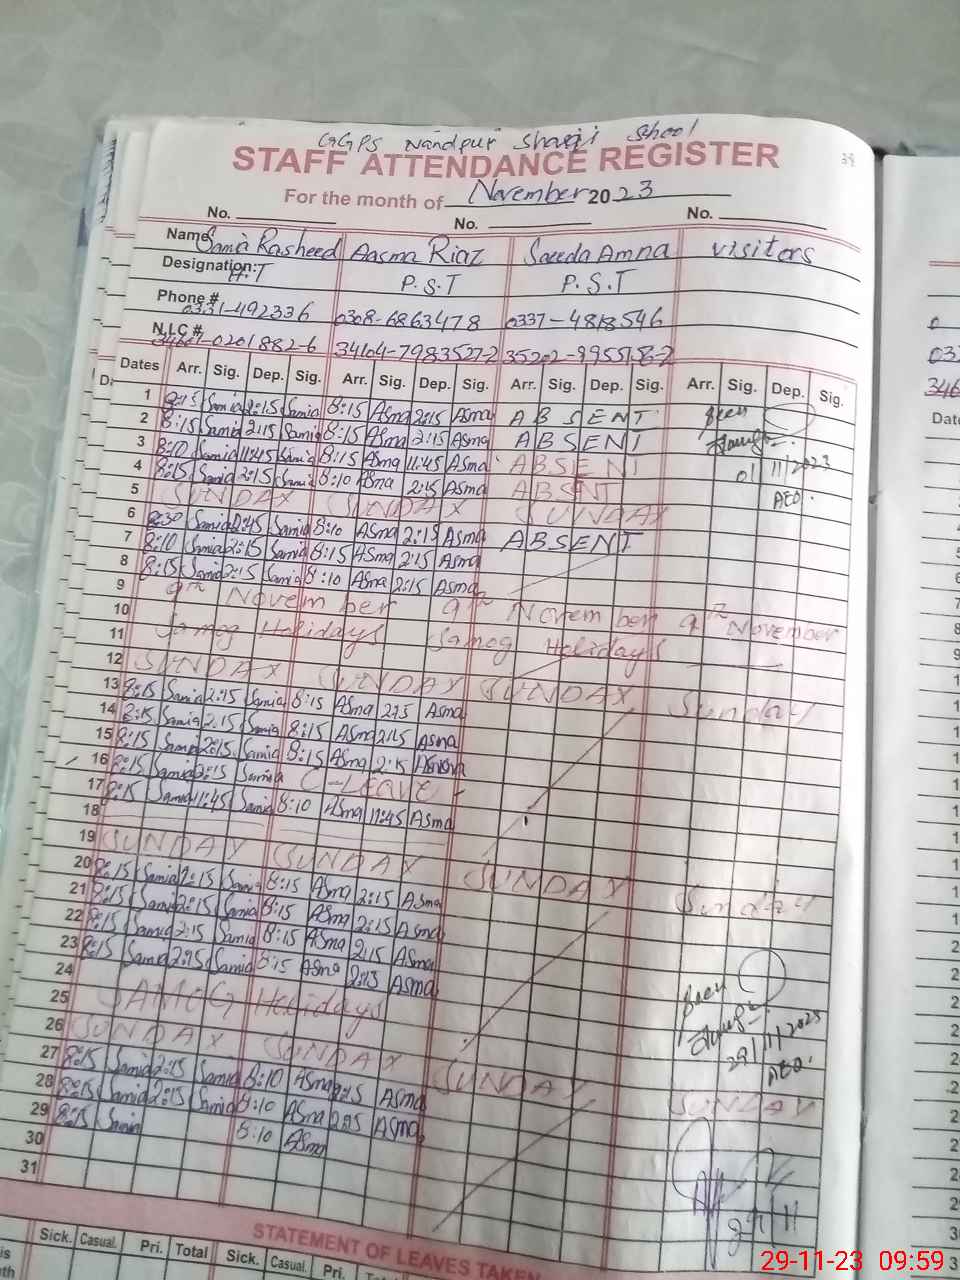 GGPS Nandpur Sharqi School
STAFF ATTENDANCE REGISTER
39
For the month of November 2023
No. No. No.
Name Samia Rasheed Aasma Riaz Saeeda Amna visitors
Designation: H.T P.S.T P.S.T
Phone # 0331-492336 0308-6863478 0337-4818546
N.I.C # 34601-0201882-6 34104-7983527-2 35202-9955158-2
Dates Arr. Sig. Dep. Sig. Arr. Sig. Dep. Sig. Arr. Sig. Dep. Sig. Arr. Sig. Dep. Sig.
1 8:15 Samia 2:15 Samia 8:15 Asma 2:15 Asma ABSENT Seen
2 8:15 Samia 2:15 Samia 8:15 Asma 2:15 Asma ABSENT
3 8:10 Samia 11:45 Samia 8:15 Asma 11:45 Asma ABSENT 01/11/2023
4 8:15 Samia 2:15 Samia 8:10 Asma 2:15 Asma ABSENT AEO.
5 SUNDAY SUNDAY SUNDAY
6 8:30 Samia 2:45 Samia 8:10 Asma 2:15 Asma
7 8:10 Samia 2:15 Samia 8:15 Asma 2:15 Asma ABSENT
8 8:15 Samia 2:15 Samia 8:10 Asma 2:15 Asma
9 9th November 9th November 9th November
10 Samog Holidays Samog Holidays
11
12 SUNDAY SUNDAY SUNDAY Sunday
13 8:15 Samia 2:15 Samia 8:15 Asma 2:15 Asma
14 8:15 Samia 2:15 Samia 8:15 Asma 2:15 Asma
15 8:15 Samia 2:15 Samia 8:15 Asma 2:15 Asma
16 8:15 Samia 2:15 Samia C-Leave
17 8:15 Samia 11:45 Samia 8:10 Asma 11:45 Asma
18
19 SUNDAY SUNDAY SUNDAY Sunday
20 8:15 Samia 2:15 Samia 8:15 Asma 2:15 Asma
21 8:15 Samia 2:15 Samia 8:15 Asma 2:15 Asma
22 8:15 Samia 2:15 Samia 8:15 Asma 2:15 Asma
23 8:15 Samia 2:15 Samia 8:15 Asma 2:15 Asma
24 Seen
25 SAMOG Holidays 29/11/2023
26 SUNDAY SUNDAY SUNDAY SUNDAY AEO.
27 8:15 Samia 2:15 Samia 8:10 Asma 2:15 Asma
28 8:15 Samia 2:15 Samia 8:10 Asma 2:15 Asma
29 8:15 Samia 8:10 Asma
30
31
STATEMENT OF LEAVES TAKEN
Sick. Casual. Pri. Total Sick. Casual. Pri.
29-11-23 09:59